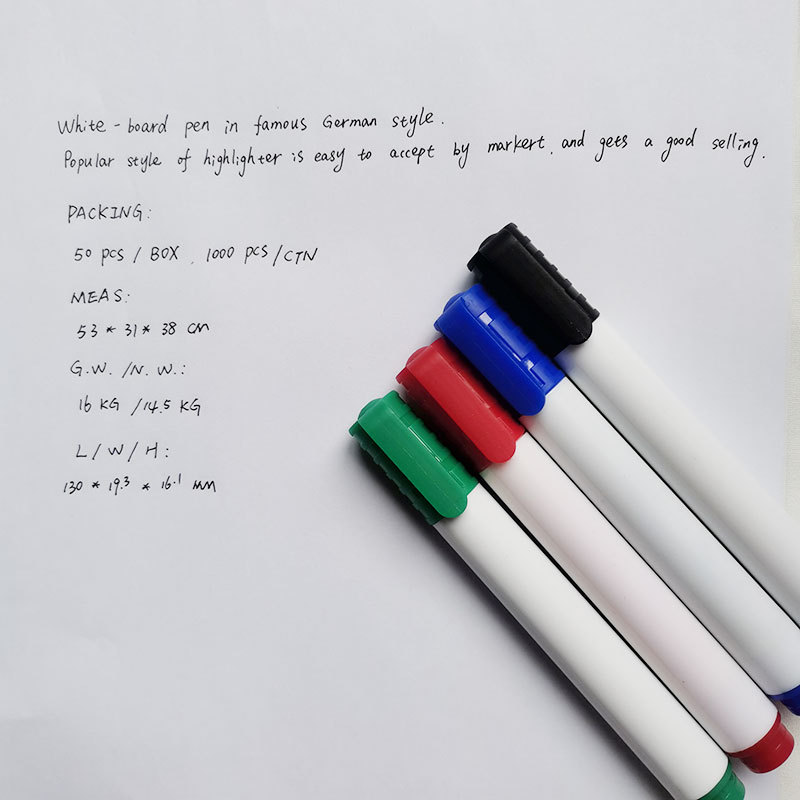 White-board pen in famous German style.
Popular style of highlighter is easy to accept by markert, and gets a good selling.
PACKING:
50 pcs / BOX, 1000 pcs/CTN
MEAS:
53 * 31 * 38 cm
G.W. /N.W.:
16 KG /14.5 KG
L/W/H:
130 * 19.3 * 16.1 mm